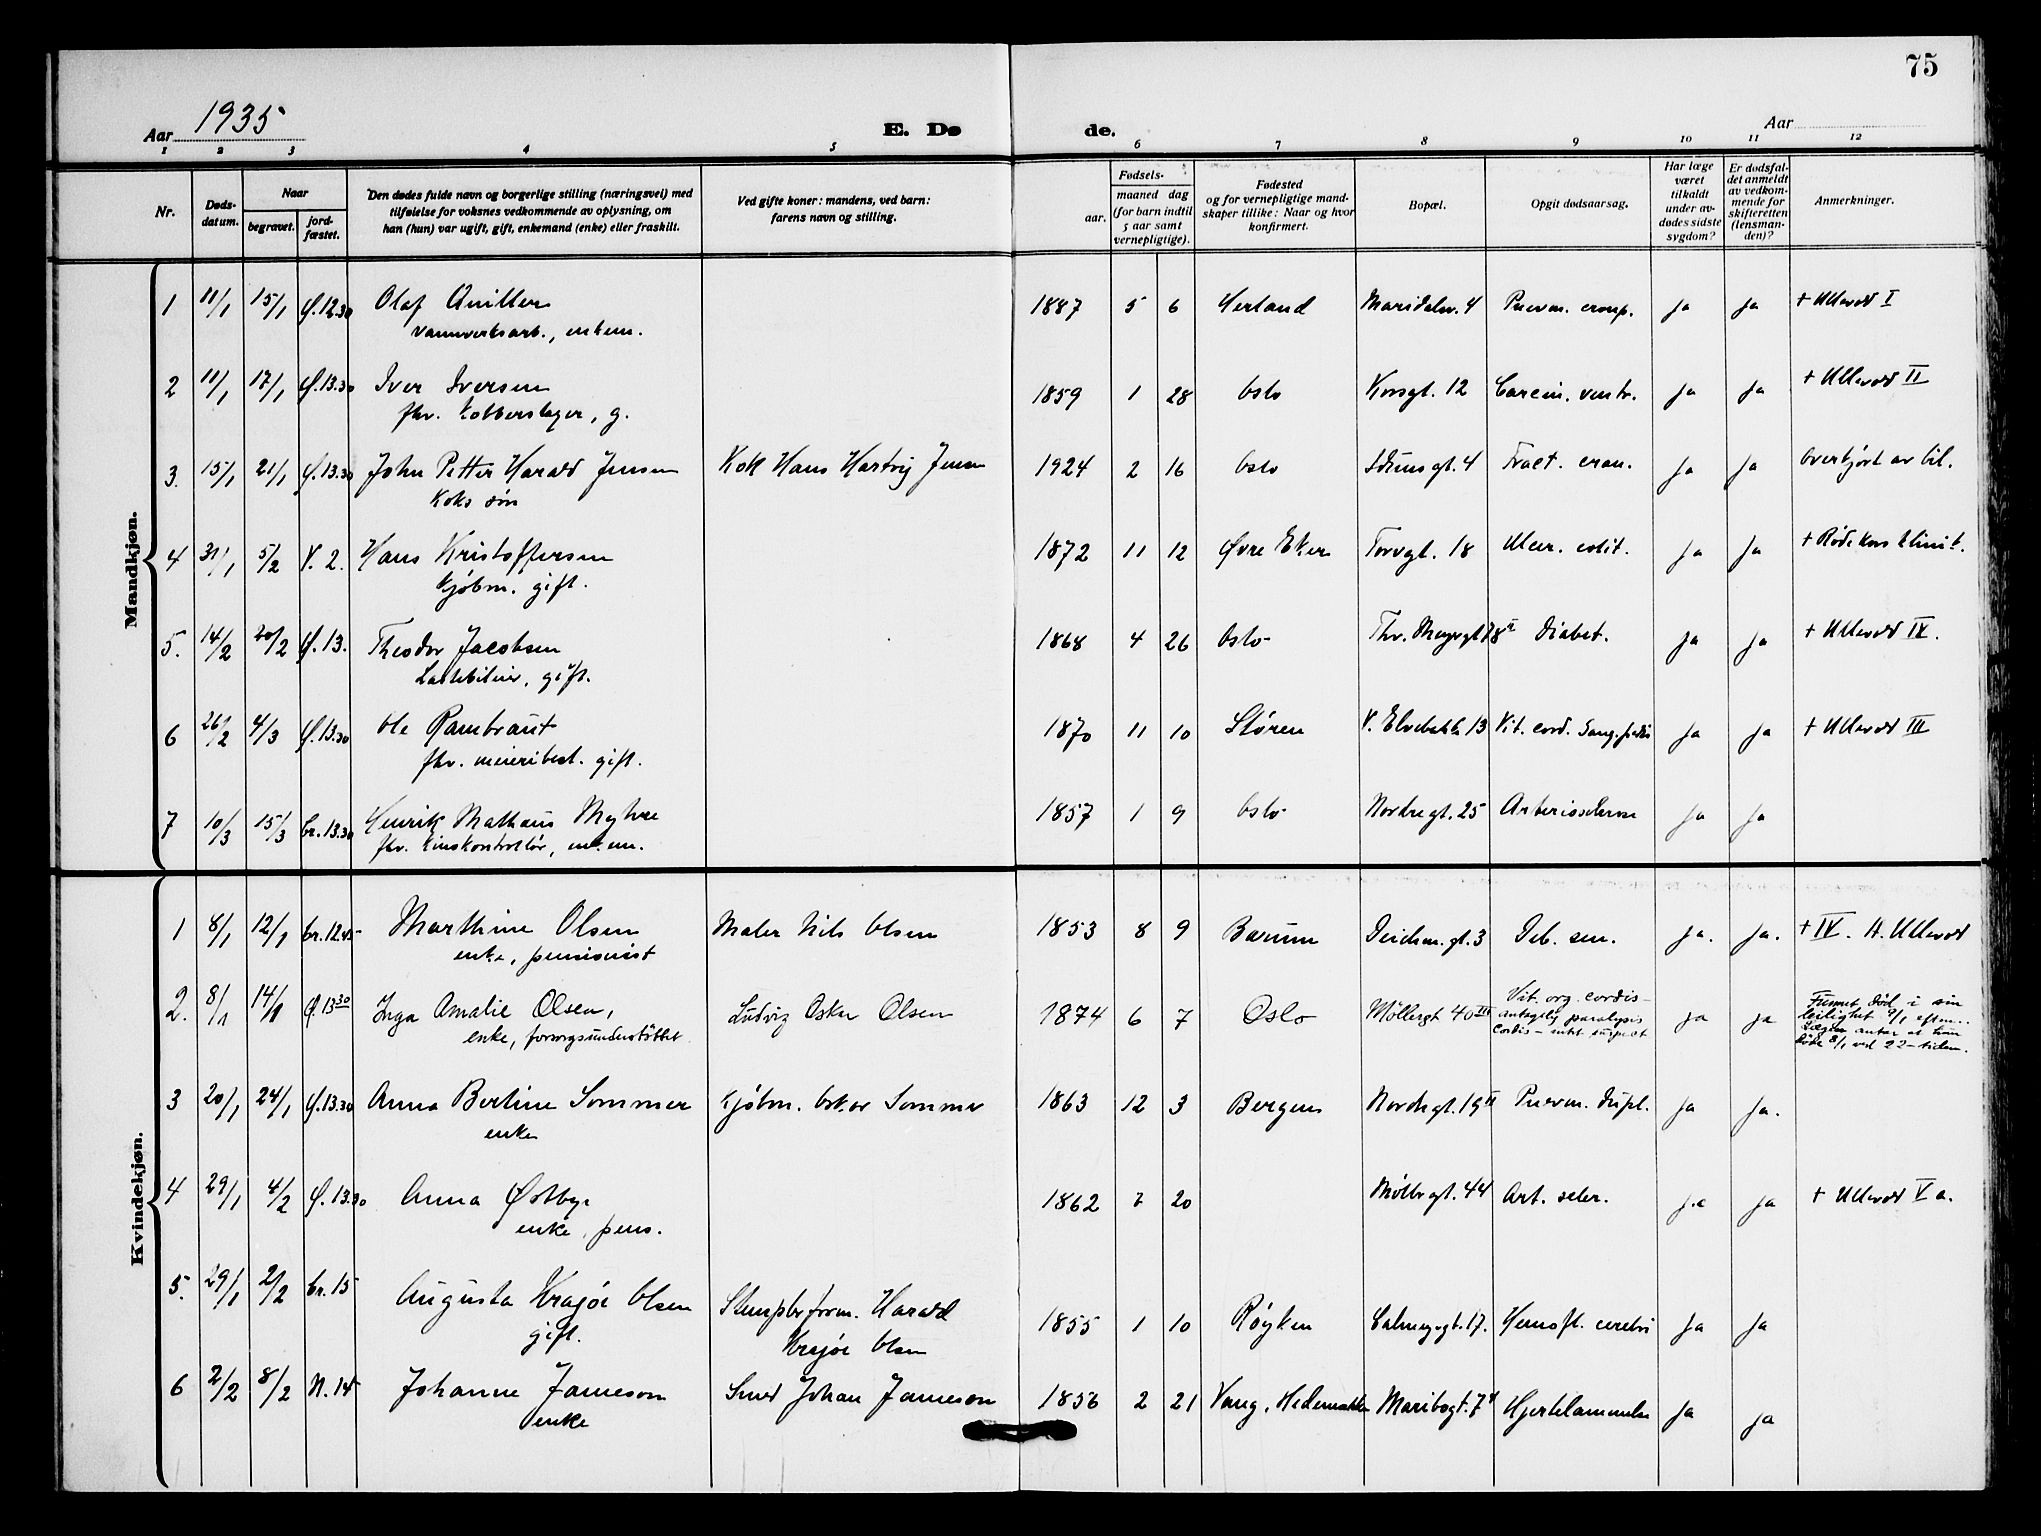 75
Aar 1935
E. Dø
de.
Aar
1 2 3 4 5 6 7 8 9 10 11 12
Nr.
Døds-
datum.
Naar
begravet.
jord-
fæstet.
Den dødes fulde navn og borgerlige stilling (næringsvei) med
tilføielse for voksnes vedkommende av oplysning, om
han (hun) var ugift, gift, enkemand (enke) eller fraskilt.
Ved gifte koner: mandens, ved barn:
farens navn og stilling.
Fødsels-
aar.
maaned dag
(for barn indtil
5 aar samt
vernepligtige).
Fødested
og for vernepligtige mand-
skaper tillike: Naar og hvor
konfirmert.
Bopæl.
Opgit dødsaarsag.
Har læge
været
tilkaldt
under av-
dødes sidste
sygdom?
Er dødsfal-
det anmeldt
av vedkom-
mende for
skifteretten
(lensman-
den)?
Anmerkninger.
Mandkjøn.
1 11/1 15/1 Ø. 12.30 Olaf 1887 5 6 Maridalsv. 4 Pnevm. croup. ja ja + Ullevål I
vannverksarb., enkem.
2 11/1 17/1 Ø. 13.30 Iver Iversen 1859 1 28 Oslo Korsgt. 12 Carcin. ventr. ja ja + Ullevål II
fhv. kobberslager, g.
3. 15/1 21/1 Ø. 13.30 John Petter Harald Jensen Kok Hans Hartvig Jensen 1924 2 16 Oslo Idunsgt. 4 Fract. cran. ja ja Overkjørt av bil.
Koks søn
4 31/1 5/2 V. 2. Hans Kristoffersen 1872 11 12 Øvre Eker Torvgt. 18 Ulcer. colit. ja ja + Røde Kors klinik.
Kjøbm. gift.
5. 14/2 20/2 Ø. 13. Theodor Jacobsen 1868 4 26 Oslo Thv. Meyersgt 78 Diabet. ja ja + Ullevål IX.
Lastebileier, gift.
6 26/2 4/3 Ø. 13.30 Ole Rambraut 1870 11 10 Støren V. Elvebakke 13 Vit. cord. ja ja + Ullevål III
fhv. meieribest. gift.
7 10/3 15/3 Cr. 13.30 Henrik Mathæus Myhre 1857 1 9 Oslo Nordregt. 25 Arteriosclerose ja ja
fhv. kinokontrollør, enkem.
Kvindekjøn.
1 8/1 12/1 Cr. 12.45 Marthine Olsen Maler Nils Olsen 1853 8 9 Bærum Deichm. gt. 3 Deb. sen. ja. ja. + IV. A. Ullevål
enke, pensionist
2. 8/1 14/1 Ø. 13 30 Inga Amalie Olsen, Ludvig Oskar Olsen 1874 6 7 Oslo Möllergt 40 III Vit. org. cordis-
antagelig paralysis
cordis - intet suspect ja ja Funnet död i sin
leilighet 9/1 efterm.
Lægen antar at hun
døde 8/1 ved 22-tiden.
enke, forsorgsunderstöttet
3 20/1 24/1 Ø. 13.30 Anna Bertine Sommer Kjøbm. Oskar Sommer 1863 12 3 Bergen Nordregt. 19 II Pnevm. dupl. ja ja.
enke
4 29/1 4/2 Ø. 13.30 Anna Østbye 1862 20 Møllergt. 44 Art. scler. ja ja + Ullevål V a.
enke, pens.
5. 29/1 2/2 Cr. 15 Augusta Kragøe Olsen Harald 1855 1 10 Røyken Calmeyergt. 17. Hemoft. cerebri ja ja
gift. Kragøe Olsen
6 2/2 8/2 N. 14 Johanne Jameson Smed Johan Jameson 1856 2 21 Vang, Hedemarken Maribogt. 7 Hjertelammelse ja ja
enke